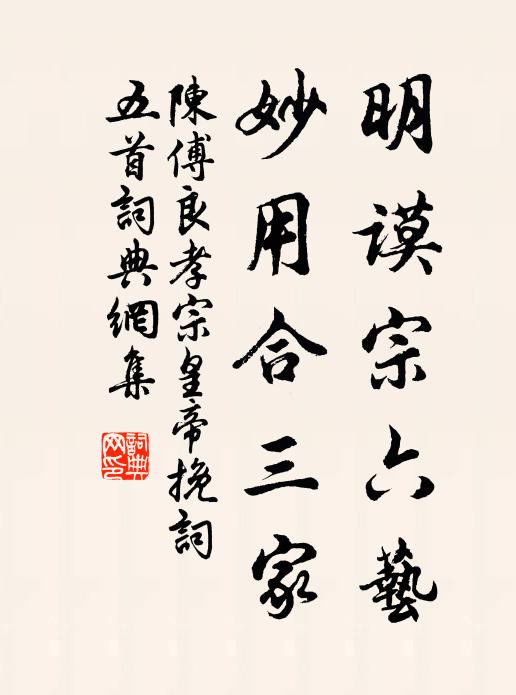 明謨宗六藝
妙用合三家
陳傅良孝宗皇帝挽詞
五首詞典網集
詞典
网印